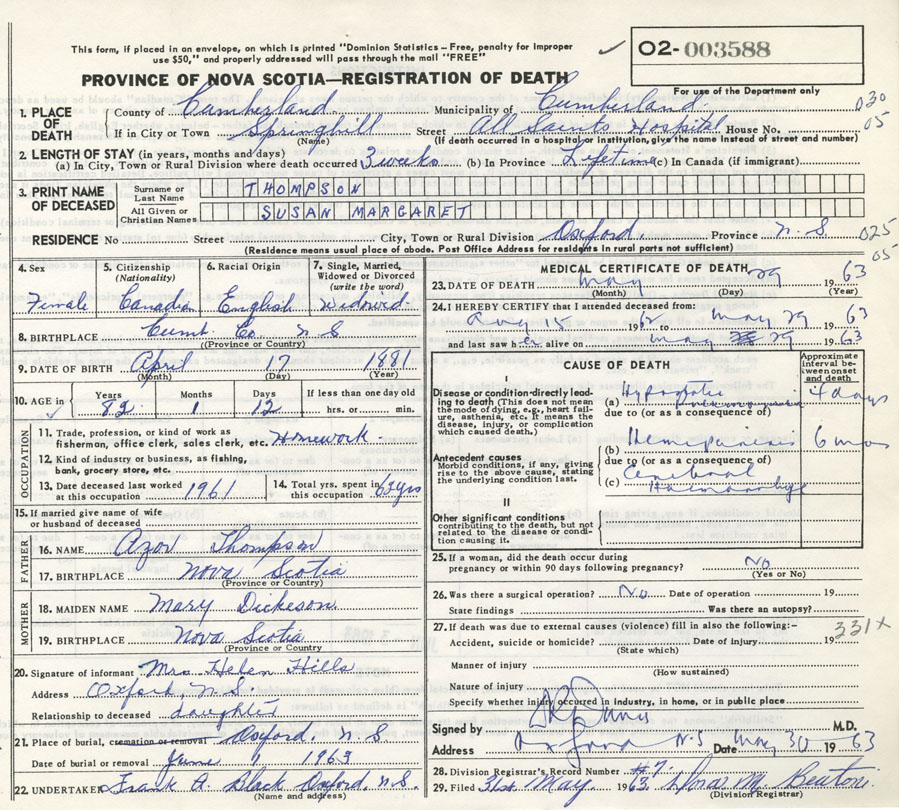 This form, if placed in an envelope, on which is printed "Dominion Statistics – Free, penalty for improper
use $50," and properly addressed will pass through the mail "FREE"
O2-003588
For use of the Department only
PROVINCE OF NOVA SCOTIA—REGISTRATION OF DEATH
030
05
1. PLACE OF DEATH
County of Cumberland Municipality of Cumberland
If in City or Town Springhill Street All Saints Hospital House No.
(Name) (If death occurred in a hospital or institution, give the name instead of street and number)
2. LENGTH OF STAY (in years, months and days)
(a) In City, Town or Rural Division where death occurred 3 weeks (b) In Province Lifetime (c) In Canada (if immigrant)
3. PRINT NAME OF DECEASED
Surname or Last Name THOMPSON
All Given or Christian Names SUSAN MARGARET
RESIDENCE No Street City, Town or Rural Division Oxford. Province N.S
025
05
(Residence means usual place of abode. Post Office Address for residents in rural parts not sufficient)
4. Sex Female
5. Citizenship (Nationality) Canadian
6. Racial Origin English
7. Single, Married, Widowed or Divorced (write the word) Widowed.
8. BIRTHPLACE Cumb. Co N S
(Province or Country)
9. DATE OF BIRTH April 17 1881
(Month) (Day) (Year)
10. AGE in Years 82 Months 1 Days 12 If less than one day old hrs. or min.
OCCUPATION
11. Trade, profession, or kind of work as fisherman, office clerk, sales clerk, etc. Homework
12. Kind of industry or business, as fishing, bank, grocery store, etc.
13. Date deceased last worked at this occupation 1961
14. Total yrs. spent in this occupation 63 yrs
15. If married give name of wife or husband of deceased
FATHER
16. NAME Azor Thompson
17. BIRTHPLACE Nova Scotia
(Province or Country)
MOTHER
18. MAIDEN NAME Mary Dickeson
19. BIRTHPLACE Nova Scotia
(Province or Country
20. Signature of informant Mrs Helen Hills
Address Oxford, N.S.
Relationship to deceased daughter
21. Place of burial, cremation or removal Oxford, N.S.
Date of burial or removal June 1 1963
22. UNDERTAKER Frank A. Black Oxford. N.S.
(Name and address)
MEDICAL CERTIFICATE OF DEATH
23. DATE OF DEATH May 29 1963
(Month) (Day) (Year)
24. I HEREBY CERTIFY that I attended deceased from:
Aug 15 1962 to May 29 1963
and last saw her alive on May 29 1963
CAUSE OF DEATH
Approximate interval between onset and death
I
Disease or condition directly leading to death (This does not mean the mode of dying, e.g., heart failure, asthenia, etc. It means the disease, injury, or complication which caused death.)
(a) 4 days
due to (or as a consequence of)
Antecedent causes
Morbid conditions, if any, giving rise to the above cause, stating the underlying condition last.
(b) Hemiparesis 6 mos
due to (or as a consequence of)
(c) Cerebral Haemorrhage
II
Other significant conditions contributing to the death, but not related to the disease or condition causing it.
25. If a woman, did the death occur during pregnancy or within 90 days following pregnancy? No
(Yes or No)
26. Was there a surgical operation? No Date of operation 19
State findings Was there an autopsy?
27. If death was due to external causes (violence) fill in also the following:–
331X
Accident, suicide or homicide? Date of injury 19
(State which)
Manner of injury
(How sustained)
Nature of injury
Specify whether injury occurred in industry, in home, or in public place
Signed by M.D.
Address Oxford N.S Date May 30 1963
28. Division Registrar's Record Number #7.
29. Filed 31st. May 1963.
(Division Registrar)